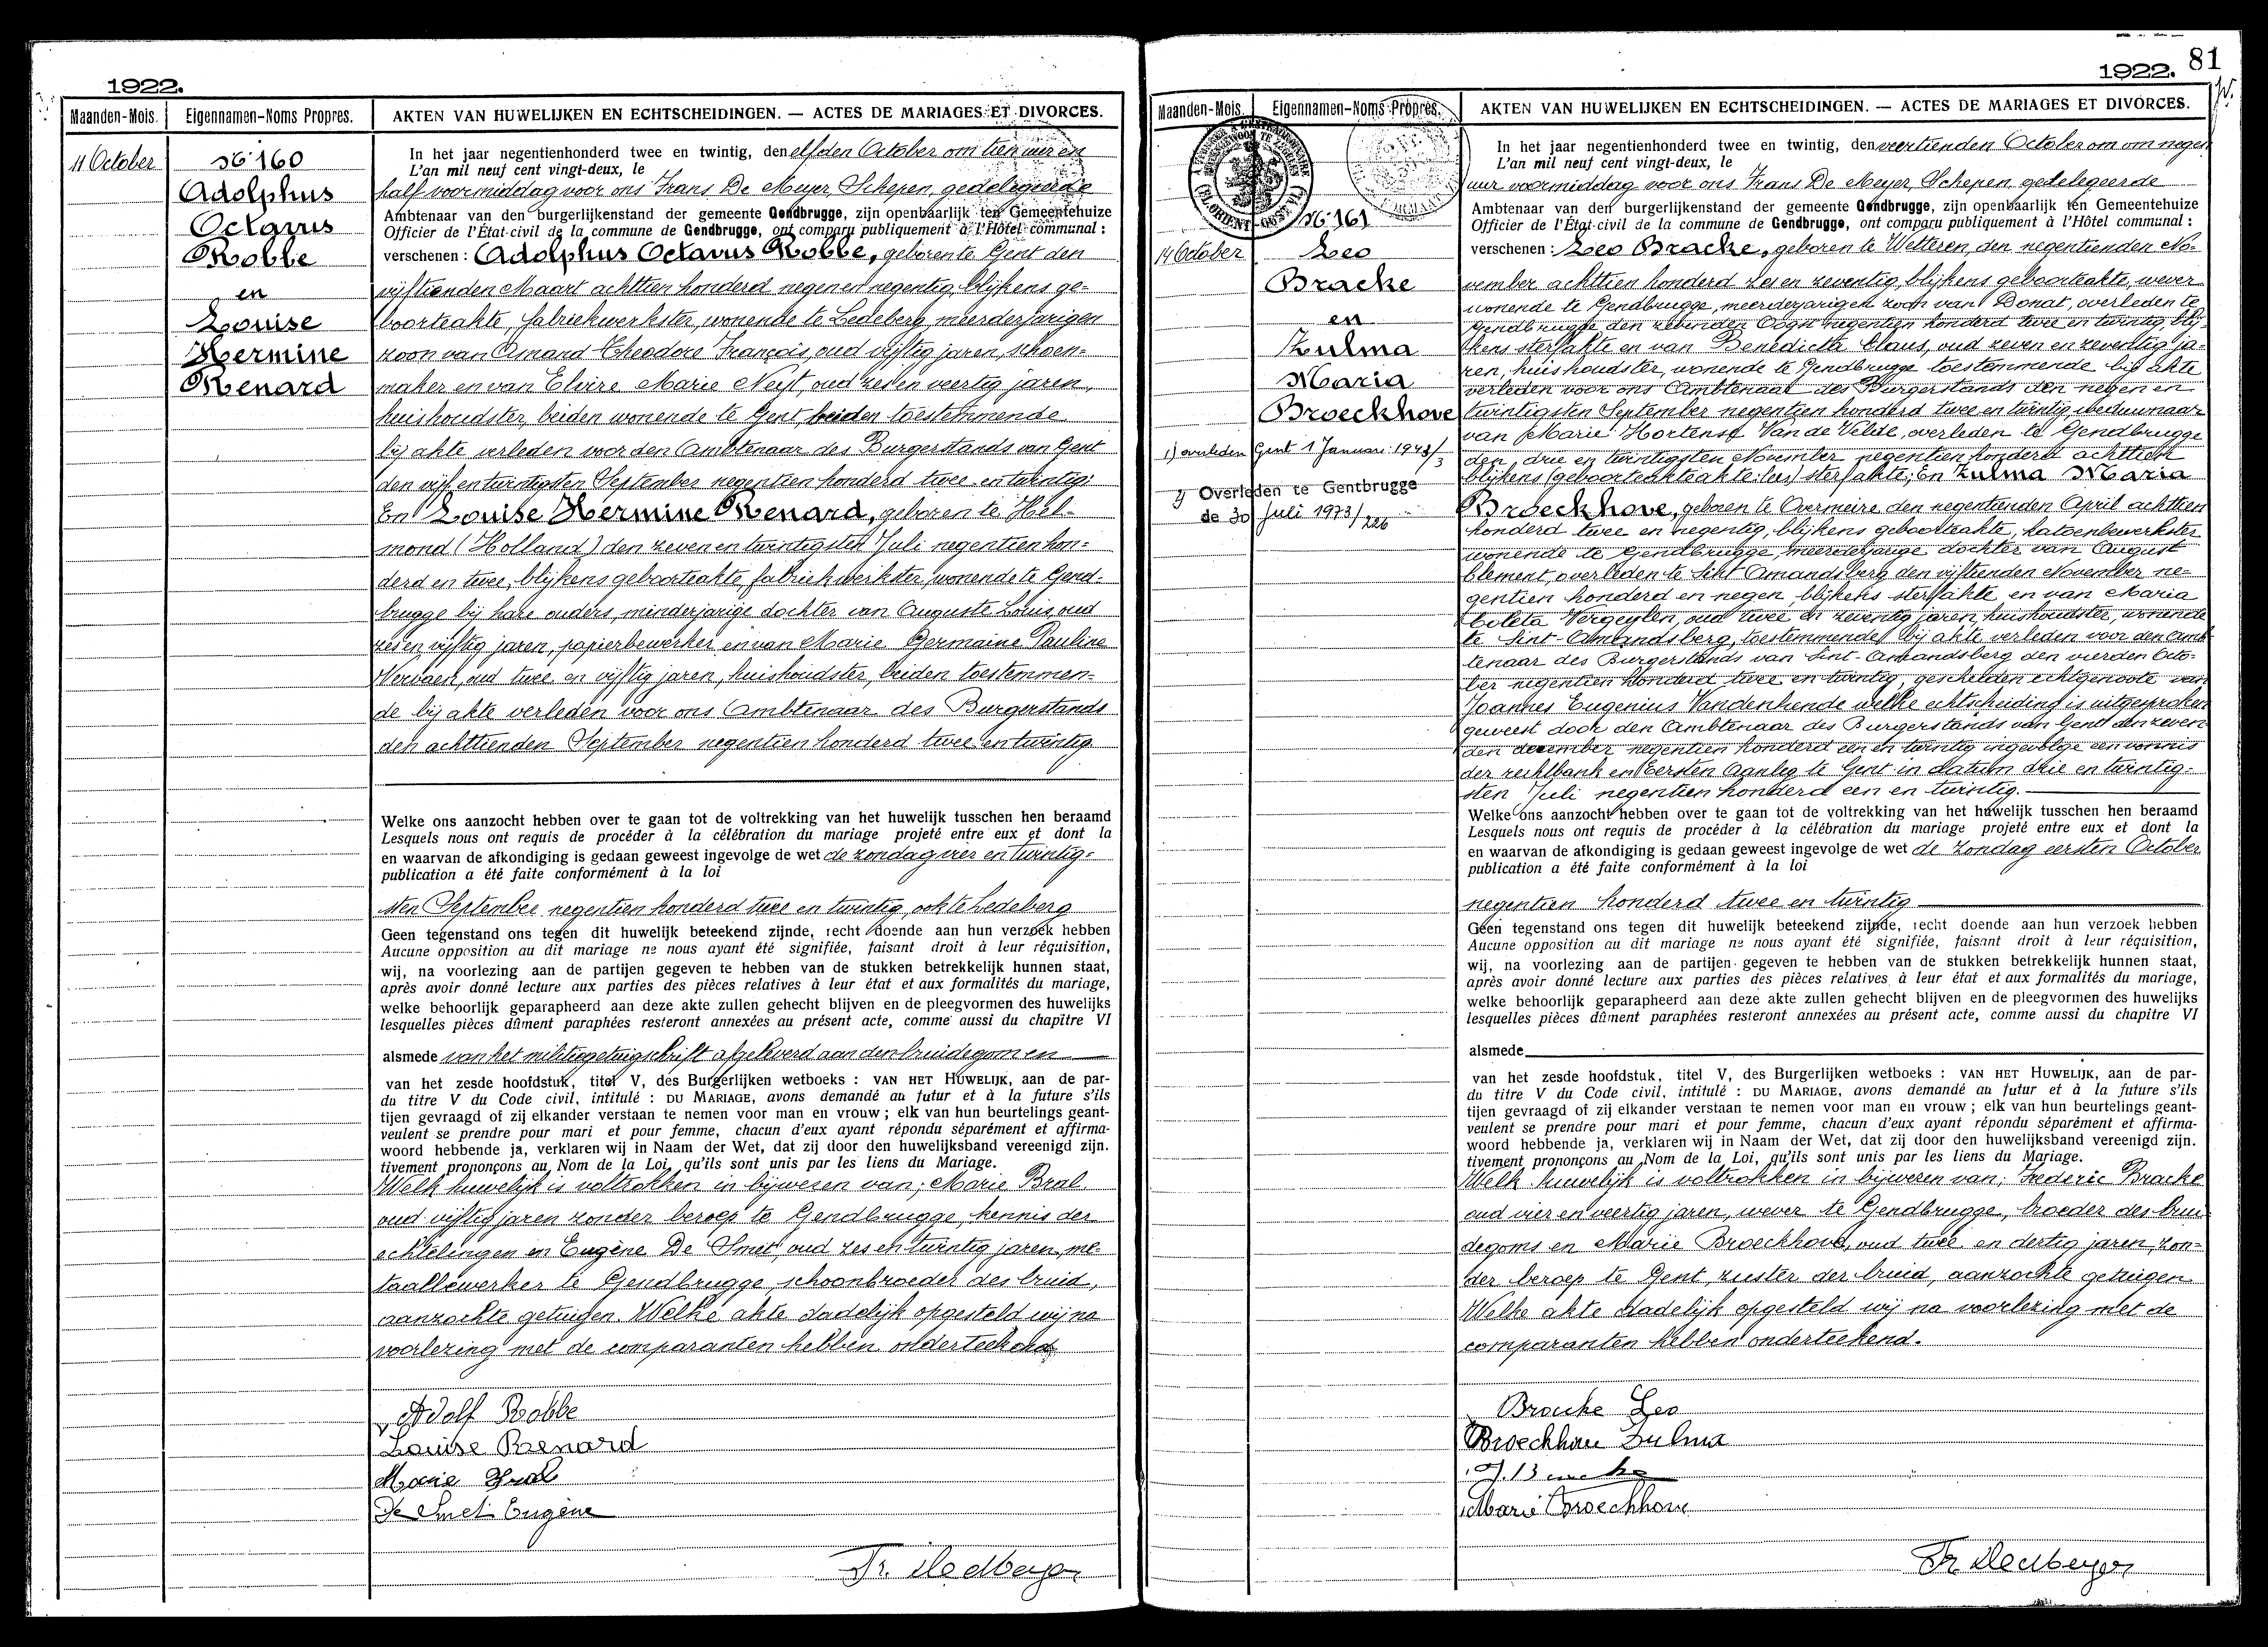 1922.
Maanden-Mois.
Eigennamen-Noms Propres.
AKTEN VAN HUWELIJKEN EN ECHTSCHEIDINGEN. — ACTES DE MARIAGES ET DIVORCES.
11 October
No 160
Adolphus
Octavus
Robbe
en
Louise
Hermine
Renard
In het jaar negentienhonderd twee en twintig, den elfden October om tien uur en
L'an mil neuf cent vingt-deux, le
half voormiddag voor ons Frans De Meyer, Schepen, gedelegeerde
Ambtenaar van den burgerlijkenstand der gemeente Gendbrugge, zijn openbaarlijk ten Gemeentehuize
Officier de l'État-civil de la commune de Gendbrugge, ont comparu publiquement à l'Hôtel communal :
verschenen : Adolphus Octavus Robbe, geboren te Gent den
vijftienden Maart achttien honderd negen en negentig, blijkens ge-
boorteakte, fabriekwerkster, wonende te Ledeberg, meerderjarigen
zoon van Amand Theodore François, oud vijftig jaren, schoen-
maker en van Elvire Marie Neyt, oud zes en veertig jaren,
huishoudster, beiden wonende te Gent, beiden toestemmende
bij akte verleden voor den Ambtenaar des Burgerstands van Gent
den vijf en twintigsten September negentien honderd twee en twintig;
En Louise Hermine Renard, geboren te Hel-
mond (Holland) den zeven en twintigsten Juli negentien hon-
derd en twee, blijkens geboorteakte, fabriekwerkster, wonende te Gend-
brugge bij hare ouders, minderjarige dochter van Auguste Louis, oud
zes en vijftig jaren, papierbewerker en van Marie Germaine Pauline
Vervaest, oud twee en vijftig jaren, huishoudster, beiden toestemmen-
de bij akte verleden voor ons Ambtenaar des Burgerstands
den achttienden September negentien honderd twee en twintig
Welke ons aanzocht hebben over te gaan tot de voltrekking van het huwelijk tusschen hen beraamd
Lesquels nous ont requis de procéder à la célébration du mariage projeté entre eux et dont la
en waarvan de afkondiging is gedaan geweest ingevolge de wet de zondag vier en twintig-
publication a été faite conformément à la loi
sten September negentien honderd twee en twintig, ook te Ledeberg
Geen tegenstand ons tegen dit huwelijk beteekend zijnde, recht doende aan hun verzoek hebben
Aucune opposition au dit mariage ne nous ayant été signifiée, faisant droit à leur réquisition,
wij, na voorlezing aan de partijen gegeven te hebben van de stukken betrekkelijk hunnen staat,
après avoir donné lecture aux parties des pièces relatives à leur état et aux formalités du mariage,
welke behoorlijk geparapheerd aan deze akte zullen gehecht blijven en de pleegvormen des huwelijks
lesquelles pièces dûment paraphées resteront annexées au présent acte, comme aussi du chapitre VI
alsmede van het militiegetuigschrift afgeleverd aan den bruidegom en
van het zesde hoofdstuk, titel V, des Burgerlijken wetboeks : VAN HET HUWELIJK, aan de par-
du titre V du Code civil, intitulé : DU MARIAGE, avons demandé au futur et à la future s'ils
tijen gevraagd of zij elkander verstaan te nemen voor man en vrouw ; elk van hun beurtelings geant-
veulent se prendre pour mari et pour femme, chacun d'eux ayant répondu séparément et affirma-
woord hebbende ja, verklaren wij in Naam der Wet, dat zij door den huwelijksband vereenigd zijn.
tivement prononçons au Nom de la Loi, qu'ils sont unis par les liens du Mariage.
Welk huwelijk is voltrokken in bijwezen van; Marie Bral
oud vijftig jaren zonder beroep te Gendbrugge, kennis der
echtelingen en Eugène De Smet, oud zes en twintig jaren, me-
taalbewerker te Gendbrugge, schoonbroeder des bruid,
aanzochte getuigen. Welke akte dadelijk opgesteld wij na
voorlezing met de comparanten hebben onderteekend
Adolf Robbe
Louise Renard
Marie Bral
De Smet Eugène
Fr. DeMeyer
1922. 81
Maanden-Mois.
Eigennamen-Noms Propres.
AKTEN VAN HUWELIJKEN EN ECHTSCHEIDINGEN. — ACTES DE MARIAGES ET DIVORCES.
No 161
14 October
Leo
Bracke
en
Zulma
Maria
Broeckhove
1) overleden Gent 1 Januari 1943/3
2) Overleden te Gentbrugge
de 30 Juli 1973/226
In het jaar negentienhonderd twee en twintig, den veertienden October om om negen
L'an mil neuf cent vingt-deux, le
uur voormiddag voor ons Frans De Meyer, Schepen, gedelegeerde
Ambtenaar van den burgerlijkenstand der gemeente Gendbrugge, zijn openbaarlijk ten Gemeentehuize
Officier de l'État-civil de la commune de Gendbrugge, ont comparu publiquement à l'Hôtel communal :
verschenen : Leo Bracke, geboren te Wetteren, den negentienden No-
vember achttien honderd zes en zeventig, blijkens geboorteakte, wever
wonende te Gendbrugge, meerderjarigen zoon van Donat, overleden te
Gendbrugge den zevenden Oogst negentien honderd twee en twintig, blij-
kens sterfakte en van Benedicta Claus, oud zeven en zeventig ja-
ren, huishoudster, wonende te Gendbrugge toestemmende bij akte
verleden voor ons Ambtenaar des Burgerstands den negen en
twintigsten September negentien honderd twee en twintig, weduwnaar
van Marie Hortense Van de Velde, overleden te Gendbrugge
den drie en twintigsten November negentien honderd achttien
blijkens (geboorteakteakte: lees) sterfakte; En Zulma Maria
Broeckhove, geboren te Overmeire den negentienden April achttien
honderd twee en negentig, blijkens geboorteakte, katoenbewerkster
wonende te Gendbrugge, meerderjarige dochter van August
Clement, overleden te Sint Amandsberg den vijftienden November ne-
gentien honderd en negen, blijkens sterfakte en van Maria
Coleta Vergeylen, oud twee en zeventig jaren, huishoudster, wonende
te Sint-Amandsberg, toestemmende bij akte verleden voor den Amb-
tenaar des Burgerstands van Sint-Amandsberg den vierden Octo-
ber negentien honderd twee en twintig, gescheiden echtgenoote van
Joannes Eugenius Vandenhende welke echtscheiding is uitgesproken
geweest door den Ambtenaar des Burgerstands van Gent den zeven-
den december negentien honderd een en twintig ingevolge een vonnis
der rechtbank en Eersten Aanleg te Gent in datum drie en twintig-
sten Juli negentien honderd een en twintig.
Welke ons aanzocht hebben over te gaan tot de voltrekking van het huwelijk tusschen hen beraamd
Lesquels nous ont requis de procéder à la célébration du mariage projeté entre eux et dont la
en waarvan de afkondiging is gedaan geweest ingevolge de wet de zondag eersten October
publication a été faite conformément à la loi
negentien honderd twee en twintig
Geen tegenstand ons tegen dit huwelijk beteekend zijnde, recht doende aan hun verzoek hebben
Aucune opposition au dit mariage ne nous ayant été signifiée, faisant droit à leur réquisition,
wij, na voorlezing aan de partijen gegeven te hebben van de stukken betrekkelijk hunnen staat,
après avoir donné lecture aux parties des pièces relatives à leur état et aux formalités du mariage,
welke behoorlijk geparapheerd aan deze akte zullen gehecht blijven en de pleegvormen des huwelijks
lesquelles pièces dûment paraphées resteront annexées au présent acte, comme aussi du chapitre VI
alsmede
van het zesde hoofdstuk, titel V, des Burgerlijken wetboeks : VAN HET HUWELIJK, aan de par-
du titre V du Code civil, intitulé : DU MARIAGE, avons demandé au futur et à la future s'ils
tijen gevraagd of zij elkander verstaan te nemen voor man en vrouw ; elk van hun beurtelings geant-
veulent se prendre pour mari et pour femme, chacun d'eux ayant répondu séparément et affirma-
woord hebbende ja, verklaren wij in Naam der Wet, dat zij door den huwelijksband vereenigd zijn.
tivement prononçons au Nom de la Loi, qu'ils sont unis par les liens du Mariage.
Welk huwelijk is voltrokken in bijwezen van; Frederic Bracke
oud vier en veertig jaren, wever te Gendbrugge, broeder des brui-
degoms en Marie Broeckhove, oud twee en dertig jaren, zon-
der beroep te Gent, zuster der bruid, aanzochte getuigen
Welke akte dadelijk opgesteld wij na voorlezing met de
comparanten hebben onderteekend.
Bracke Leo
Broeckhove Zulma
F. Bracke
Marie Broeckhove
Fr. DeMeyer